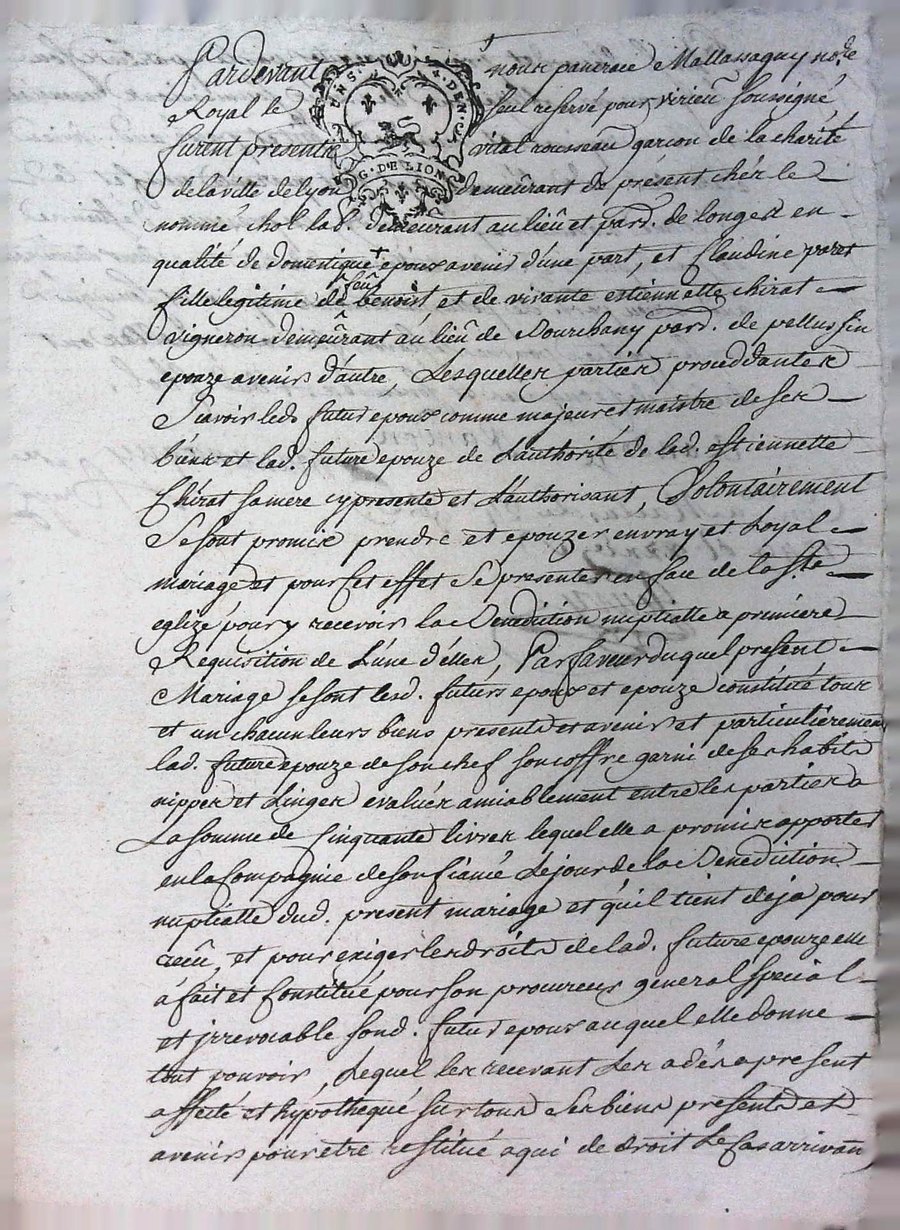 Pardevant nous pancrace Mallassagny no.re
Royal le seul reservé pour virieu soussigné
furent presents vital rousseau garcon de la charité
UN S. 4. DEN.
G. DE LION
de la ville de lyon demeûrant de présent chér le
nommé chol lab. demeurant au lieu et par. de longes en
qualité de domestique + epoux avenir d'une part, et Claudine paret
fille legitime de feu benoist et de vivante estiennette chirat
vigneron demeûrant au lieû de Dourchany par. de pellussin
epouze avenir d'autre, Lesquelles parties proceddantes
Scavoir led. futur epoux comme majeur et maistre de ses
biens et lad. future epouze de L'authorité de lad. estiennette
Chirat sa mere cy presente et L'authorisant, Volontairement
Se sont promis prendre et epouzer en vray et Loyal
mariage et pour Cet effet Se presenter en face de la Ste
eglize pour y recevoir la Benediction nuptialle a premiere
Requisition de L'une d'elles, Par faveur duquel present
Mariage se sont lesd. futurs epoux et epouze constitué tous
et un chacun leurs biens presents et avenir et particulierement
lad. future epouze de son chef son coffre garni de ses habits
nippes et Linges evalués amiablement entre les parties a
La somme de Cinquante livres lequel elle a promis apporter
en la Compagnie de son fiancé Le jour de la Benediction
nuptialle dud. present mariage et qu'il tient deja pour
recû, et pour exiger les droits de lad. future epouze elle
à fait et Constitué pour son procureur general special
et irrevocable sond. futur epoux auquel elle donne
tout pouvoir, Lequel les recevant Les a dés a present
affecté et hypothequé sur tous Ses biens presents et
avenir pour etre restitué a qui de droit Le Cas arrivant